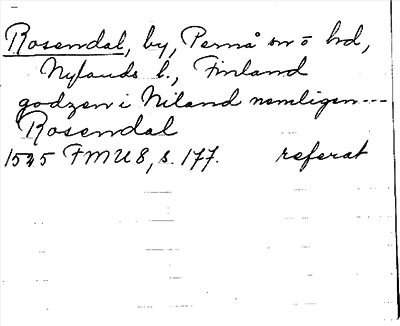 Rosendal, by, Pernå sn o hd,
Nylands l., Finland
godzen i Niland nemligen ---
Rosendal
1535 FMU 8, s. 177. referat